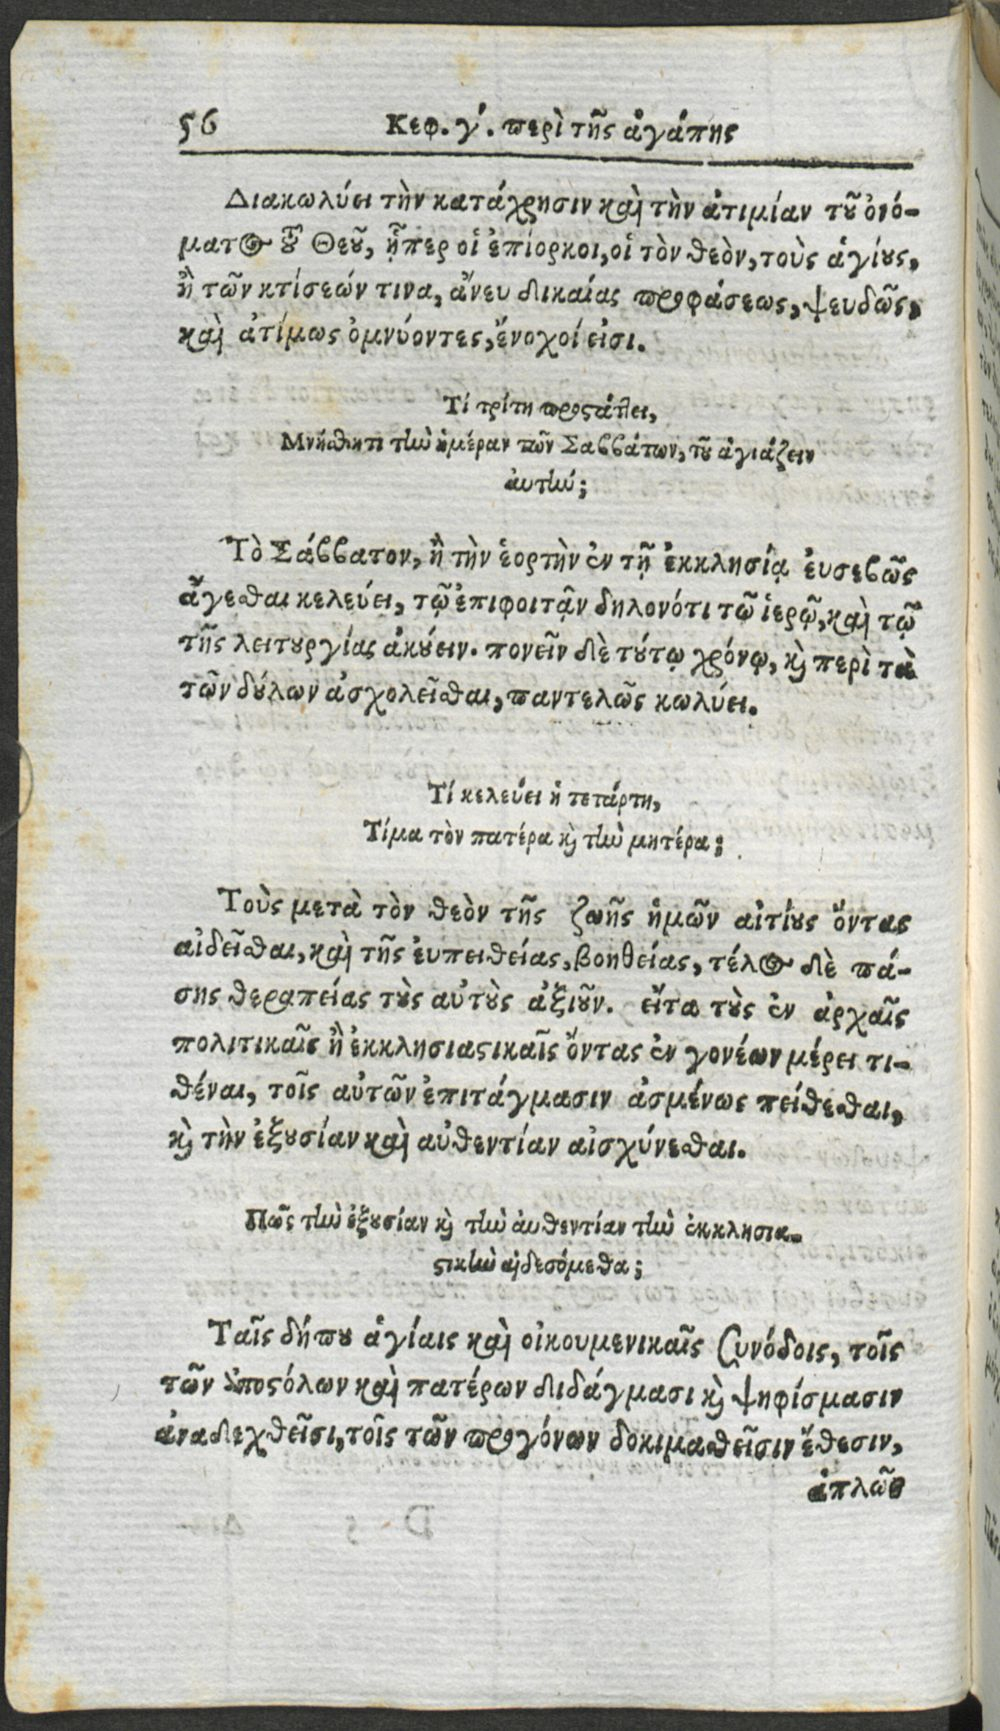 56 Κεφ. γ΄. περὶ τῆς ἀγάπης
Διακωλύει τὴν κατάχρησιν καὶ τὴν ἀτιμίαν τοῦ ὀνό-
ματος τοῦ Θεοῦ, ᾗπερ οἱ ἐπίορκοι, οἱ τὸν θεὸν, τοὺς ἁγίους,
ἢ τῶν κτίσεών τινα, ἄνευ δικαίας προφάσεως, ψευδῶς,
καὶ ἀτίμως ὀμνύοντες, ἔνοχοί εἰσι.
Τί τρίτη προστάττει,
Μνήσθητι τὴν ἡμέραν τῶν Σαββάτων, τοῦ ἁγιάζειν
ἀυτήν;
Τὸ Σάββατον, ἢ τὴν ἑορτὴν ἐν τῇ ἐκκλησίᾳ ἐυσεβῶς
ἄγεσθαι κελεύει, τῷ ἐπιφοιτᾷν δηλονότι τῷ ἱερῷ, καὶ τῷ
τῆς λειτουργίας ἀκούειν. πονεῖν δὲ τούτῳ χρόνῳ, καὶ περὶ τὰ
τῶν δούλων ἀσχολεῖσθαι, παντελῶς κωλύει.
Τί κελεύει ἡ τετάρτη,
Τίμα τὸν πατέρα καὶ τὴν μητέρα;
Τοὺς μετὰ τὸν θεὸν τῆς ζωῆς ἡμῶν αἰτίους ὄντας
αἰδεῖσθαι, καὶ τῆς ἐυπειθείας, βοηθείας, τέλος δὲ πά-
σης θεραπείας τοὺς αὐτοὺς ἀξιοῦν. εἶτα τοὺς ἐν ἀρχαῖς
πολιτικαῖς ἢ ἐκκλησιαστικαῖς ὄντας ἐν γονέων μέρει τι-
θέναι, τοῖς αὐτῶν ἐπιτάγμασιν ἀσμένως πείθεσθαι,
καὶ τὴν ἐξουσίαν καὶ αὐθεντίαν αἰσχύνεσθαι.
Πῶς τὴν ἐξουσίαν καὶ τὴν ἀυθεντίαν τὴν ἐκκλησια-
στικὴν αἰδεσόμεθα;
Ταῖς δήπου ἁγίαις καὶ οἰκουμενικαῖς Συνόδοις, τοῖς
τῶν Ἀποστόλων καὶ πατέρων διδάγμασι καὶ ψηφίσμασιν
ἀναδεχθεῖσι, τοῖς τῶν προγόνων δοκιμασθεῖσιν ἔθεσιν,
ἁπλῶς